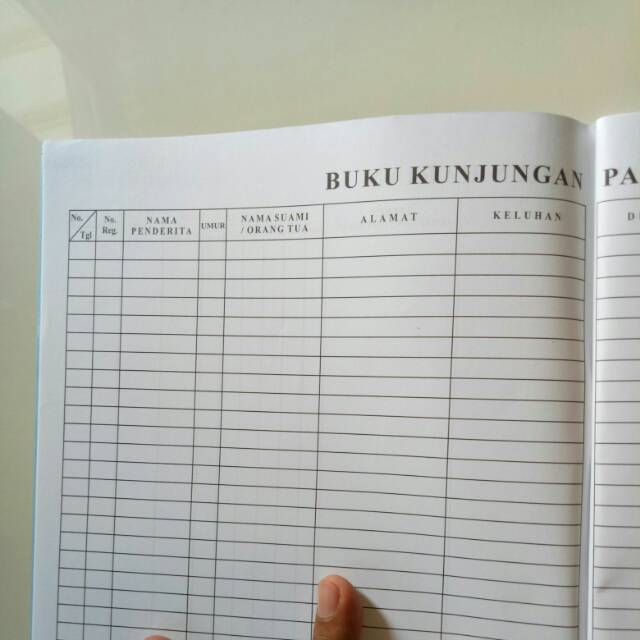 BUKU KUNJUNGAN PA
No. Tgl
No. Reg.
NAMA PENDERITA
UMUR
NAMA SUAMI / ORANG TUA
ALAMAT
KELUHAN
D